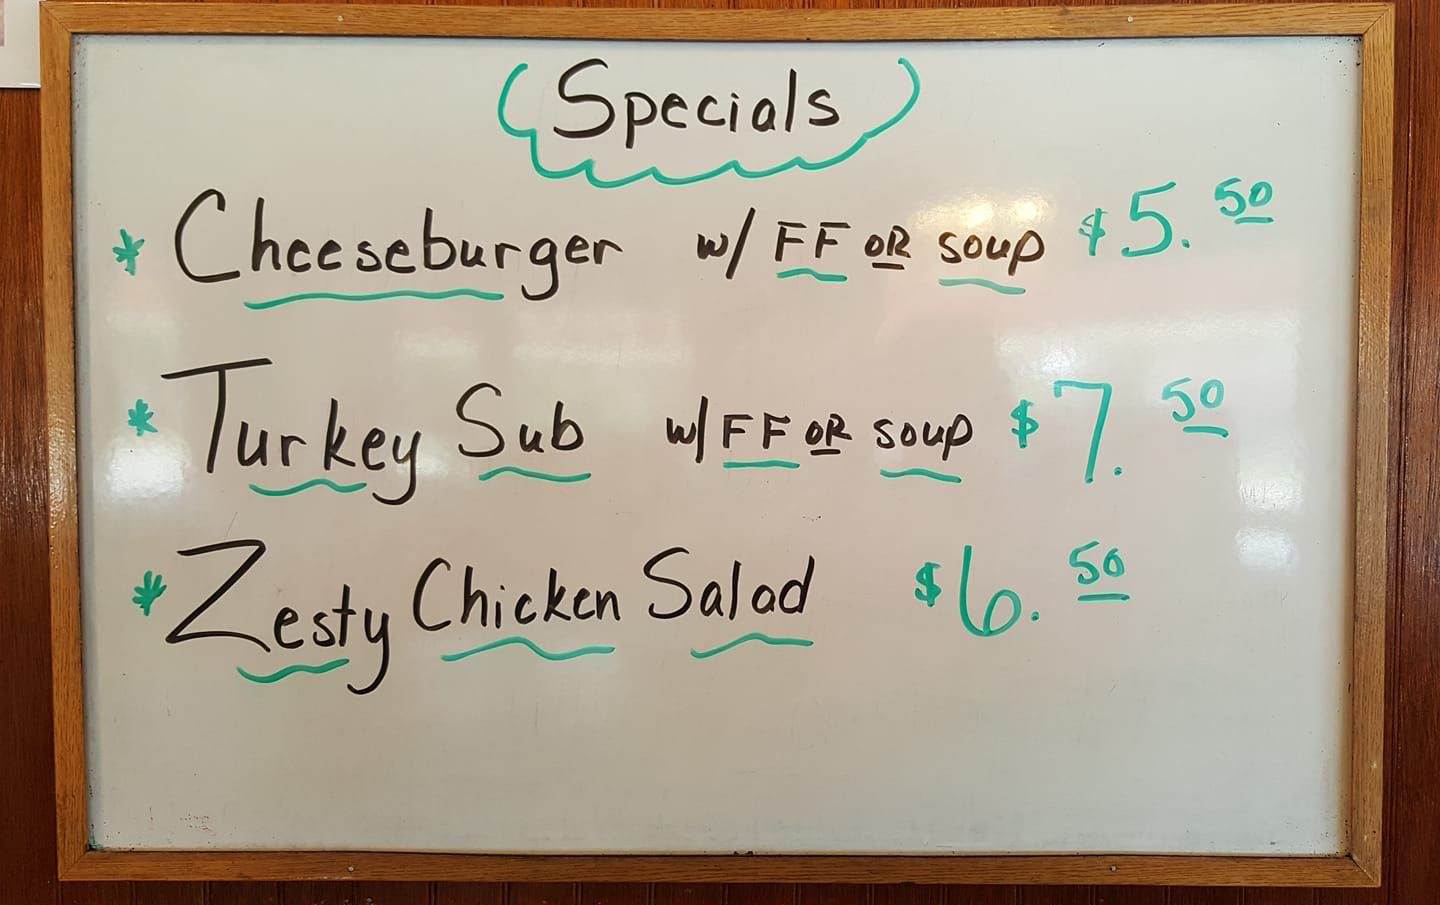 Specials
* Cheeseburger w/ FF OR soup $5.50
* Turkey Sub w/ FF OR soup $7.50
* Zesty Chicken Salad $6.50